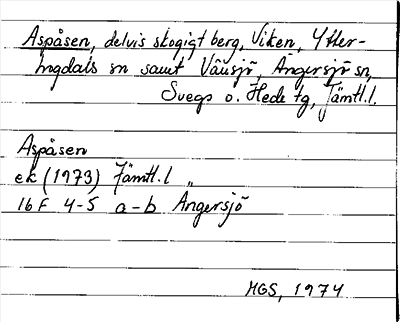 Aspåsen, delvis skogigt berg, Viken, Ytter-
hogdals sn samt Vänsjö, Ängersjö sn,
Svegs o. Hede tg, Jämtl.l.
Aspåsen
ek (1973) Jämtl.l „
16F 4-5 a-b Ängersjö
HGS, 1974